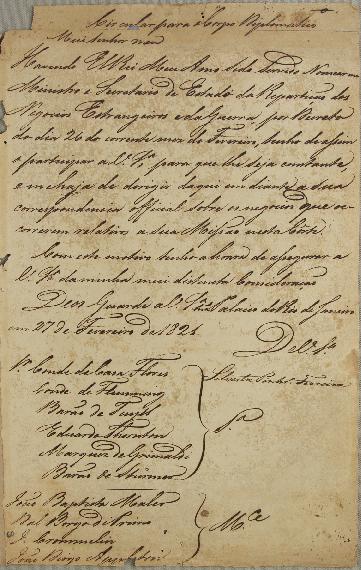 Circular para o Corpo Diplomatico
Meu senhor meu
Havendo El Rei Meu Amo sido Servido Nomear-me
Ministro e Secretario de Estado da Repartição dos
Negocios Estrangeiros e da Guerra por Decreto
do dia 26 do corrente mez de Fevereiro, tenho de assim
o participar a para que lhe seja constante,
e m haja de dirigir daqui em diante a sua
correspondencia official sobre os negocios que oc-
correrem relativos a sua Missão nesta Côrte.
Com este motivo tenho a honra de assegurar a
da minha mui distincta Consideração
Deos Guarde a Palacio do Rio de Janeiro
em 27 de Fevereiro de 1821
De
Silvestre Pinheiro Ferreira
Conde de Casa Flores
Conde de Flemming
Barão de Tuyll
Eduardo Thornton
Marquez de Grimaldi
Barão de Stürmer
João Baptista Maler
Dal Borgo di Primo
J. Crommelin
João
M.ce